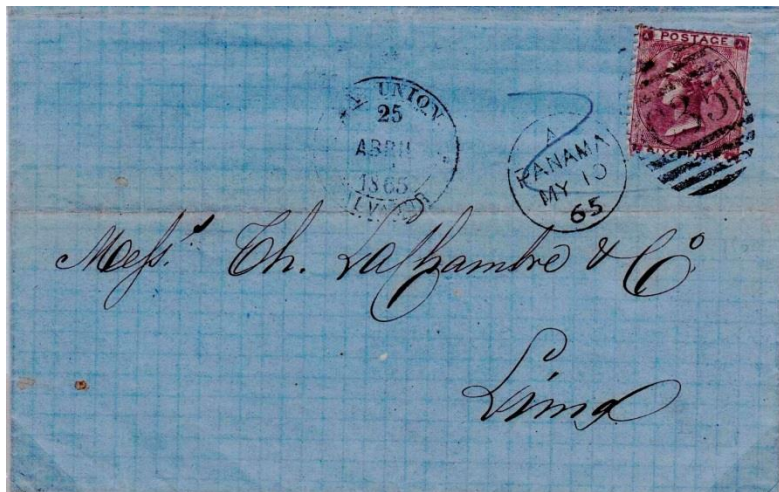 POSTAGE
UNION
25
ABRIL
1865
A
PANAMA
MY 10
65
2
Messrs. Th. Lachambre & Co
Lima